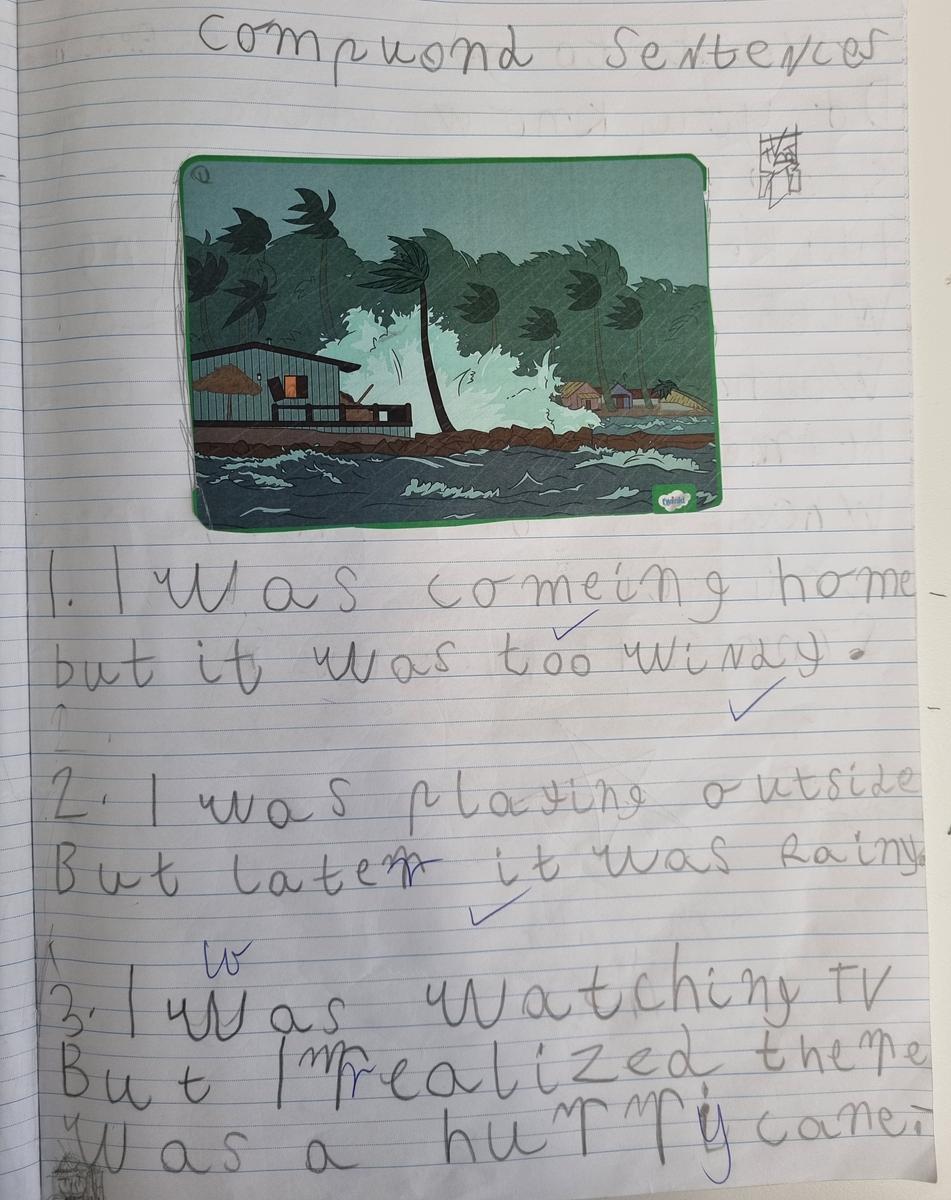 Compuond Sentences
twinkl
1. I was comeing home
but it was too windy.
2. I was playing outside
But later it was Rainy.
w
3. I was watching TV
But I realized there
was a hurrycane.